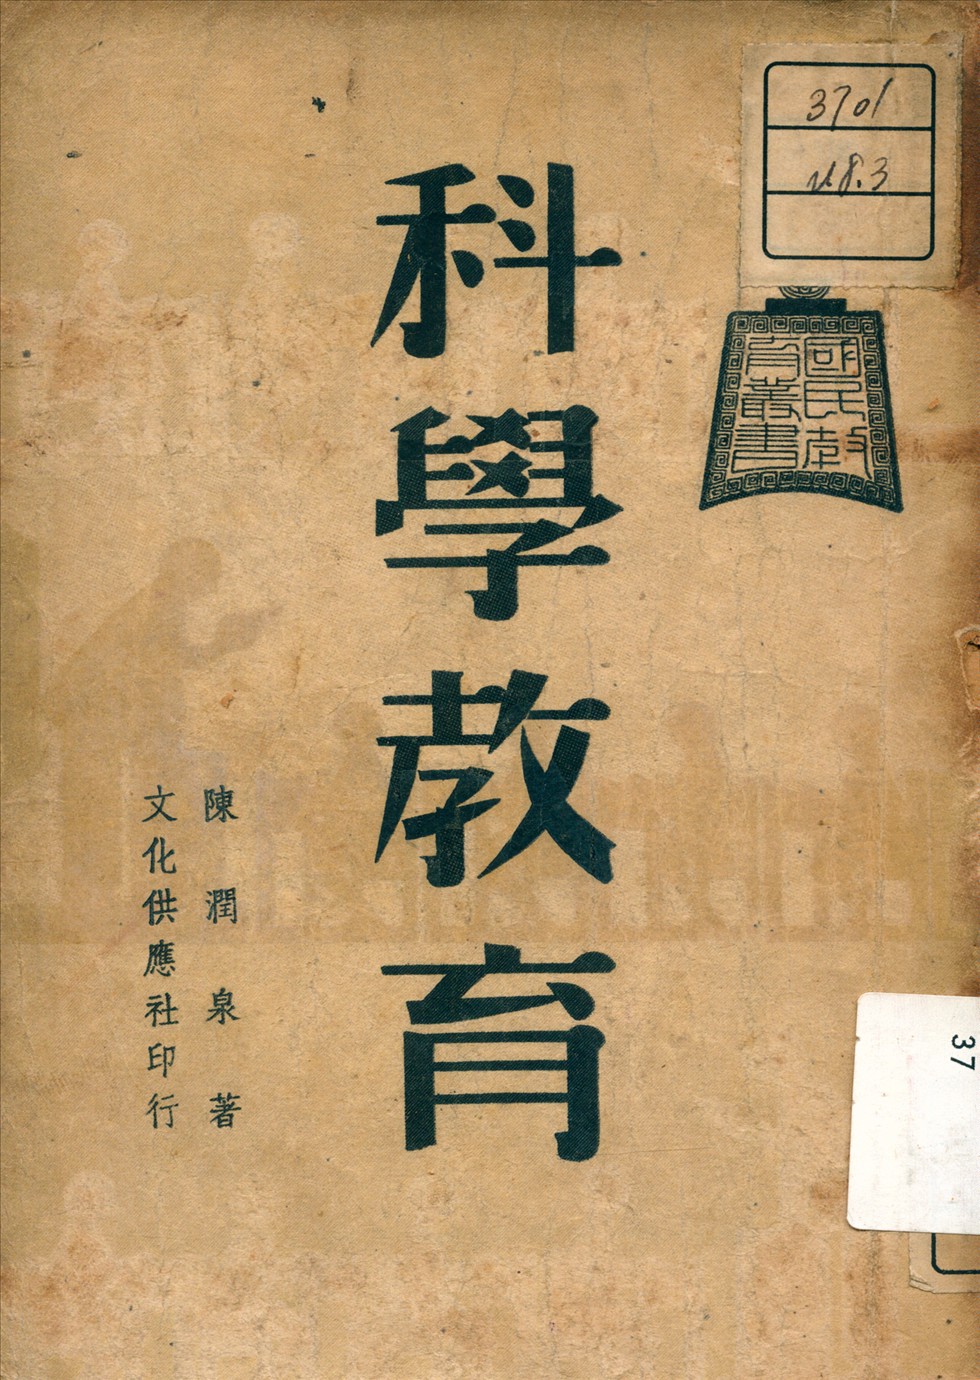 科學教育
3701
國民教
育叢書
陳潤泉著
文化供應社印行
37